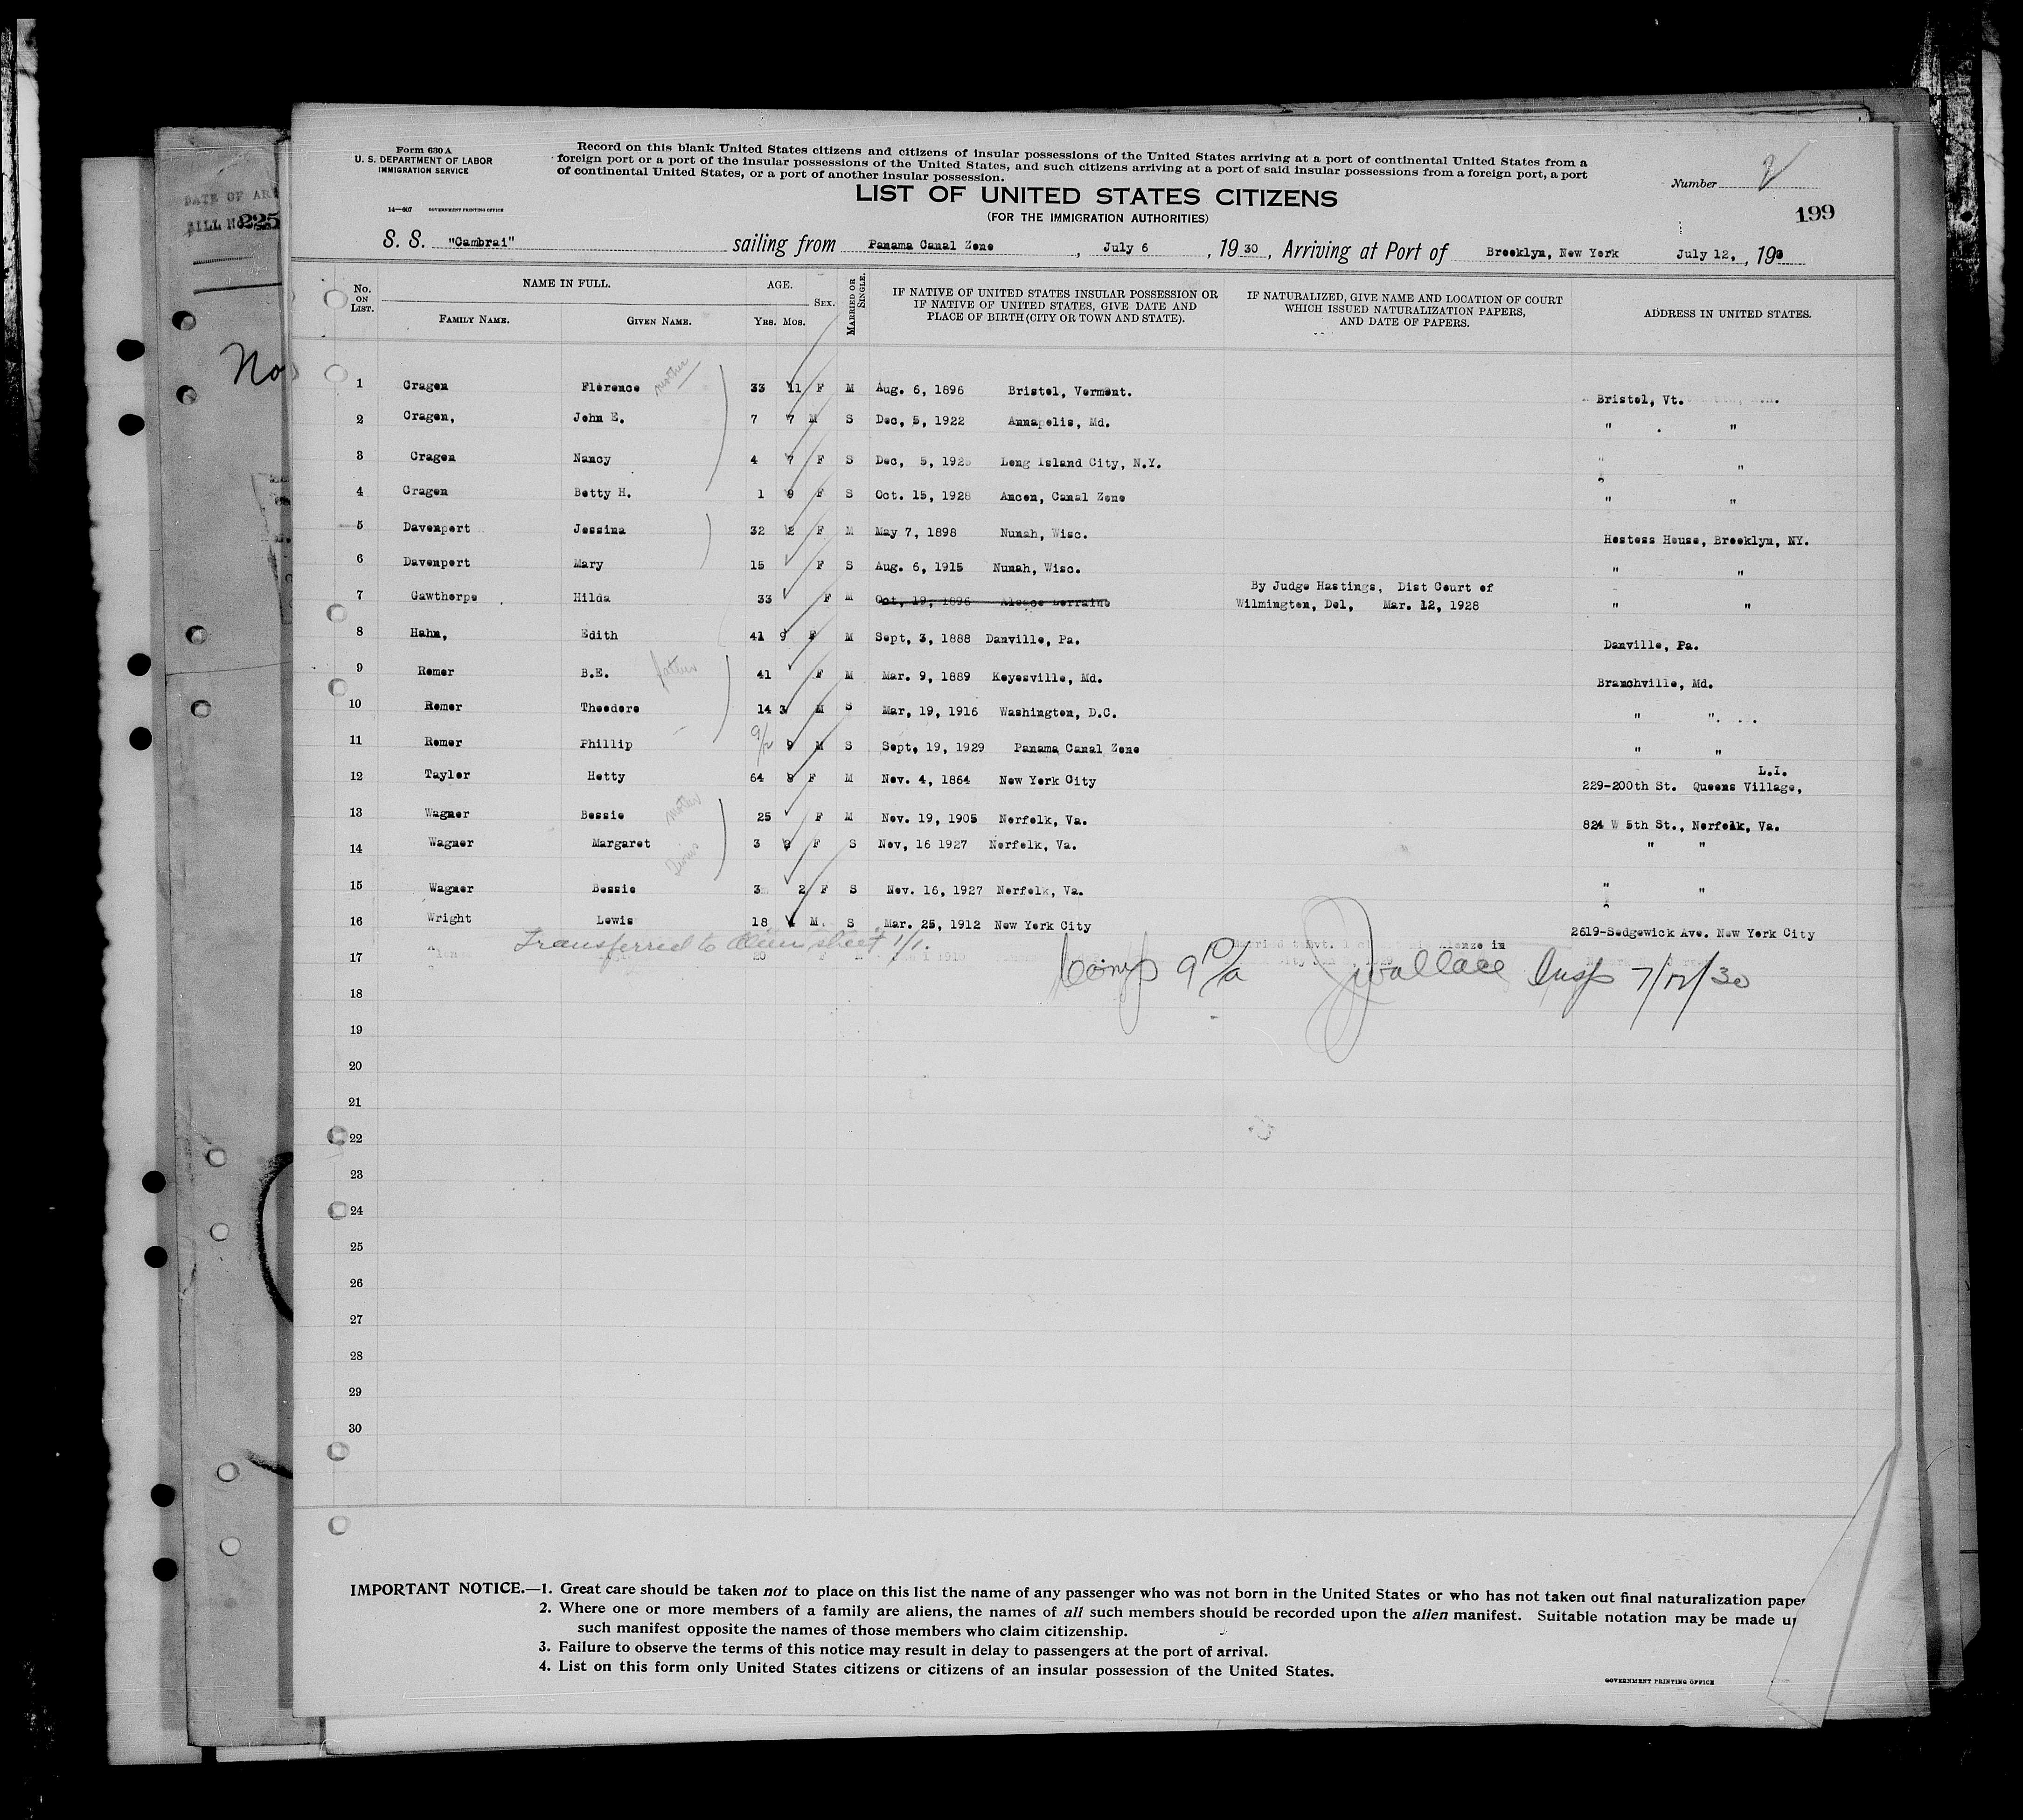 DATE OF AR
BILL No. 225
No
Form 630 A
U. S. DEPARTMENT OF LABOR
IMMIGRATION SERVICE
14—607 GOVERNMENT PRINTING OFFICE
Record on this blank United States citizens and citizens of insular possessions of the United States arriving at a port of continental United States from a
foreign port or a port of the insular possessions of the United States, and such citizens arriving at a port of said insular possessions from a foreign port, a port
of continental United States, or a port of another insular possession.
LIST OF UNITED STATES CITIZENS
(FOR THE IMMIGRATION AUTHORITIES)
Number 2
199
S. S. "Cambrai" sailing from Panama Canal Zone, July 6, 1930, Arriving at Port of Brooklyn, New York July 12, , 193
No. ON LIST. NAME IN FULL. AGE. SEX. MARRIED OR SINGLE. IF NATIVE OF UNITED STATES INSULAR POSSESSION OR IF NATIVE OF UNITED STATES, GIVE DATE AND PLACE OF BIRTH (CITY OR TOWN AND STATE). IF NATURALIZED, GIVE NAME AND LOCATION OF COURT WHICH ISSUED NATURALIZATION PAPERS, AND DATE OF PAPERS. ADDRESS IN UNITED STATES.
FAMILY NAME. GIVEN NAME. YRS. MOS.
1 Cragen Florence mother 33 11 F M Aug. 6, 1896 Bristol, Vermont. Bristol, Vt.
2 Cragen, John E. 7 7 M S Dec, 5, 1922 Annapolis, Md. " "
3 Cragen Nancy 4 7 F S Dec, 5, 1925 Long Island City, N.Y. " "
4 Cragen Betty H. 1 9 F S Oct. 15, 1928 Ancon, Canal Zone " "
5 Davenport Jessina 32 2 F M May 7, 1898 Nunah, Wisc. Hostess House, Brooklyn, NY.
6 Davenport Mary 15 F S Aug. 6, 1915 Nunah, Wisc. " "
7 Gawthorpe Hilda 33 F M Oct, 19, 1896 Alsace Lorraine By Judge Hastings, Dist Court of Wilmington, Del, Mar. 12, 1928 " "
8 Hahn, Edith 41 9 F M Sept, 3, 1888 Danville, Pa. Danville, Pa.
9 Romer B.E. 41 F M Mar. 9, 1889 Keyesville, Md. Branchville, Md.
10 Romer Theodore 14 3 M S Mar, 19, 1916 Washington, D.C. " "
11 Romer Phillip 9/12 9 M S Sept, 19, 1929 Panama Canal Zone " "
12 Taylor Hetty 64 8 F M Nov. 4, 1864 New York City 229-200th St. Queens Village, L.I.
13 Wagner Bessie mother 25 F M Nov. 19, 1905 Norfolk, Va. 824 W 5th St., Norfolk, Va.
14 Wagner Margaret 3 F S Nov, 16 1927 Norfolk, Va. " "
15 Wagner Bessie 3 2 F S Nov. 16, 1927 Norfolk, Va. " "
16 Wright Lewis 18 4 M. S Mar. 25, 1912 New York City 2619-Sedgewick Ave. New York City
Transferred to Alien sheet 1/1.
17
Comp 9 10/a J Wallace Insp 7/12/30
18
19
20
21
22
23
24
25
26
27
28
29
30
IMPORTANT NOTICE.—1. Great care should be taken not to place on this list the name of any passenger who was not born in the United States or who has not taken out final naturalization paper
2. Where one or more members of a family are aliens, the names of all such members should be recorded upon the alien manifest. Suitable notation may be made up
such manifest opposite the names of those members who claim citizenship.
3. Failure to observe the terms of this notice may result in delay to passengers at the port of arrival.
4. List on this form only United States citizens or citizens of an insular possession of the United States.
GOVERNMENT PRINTING OFFICE